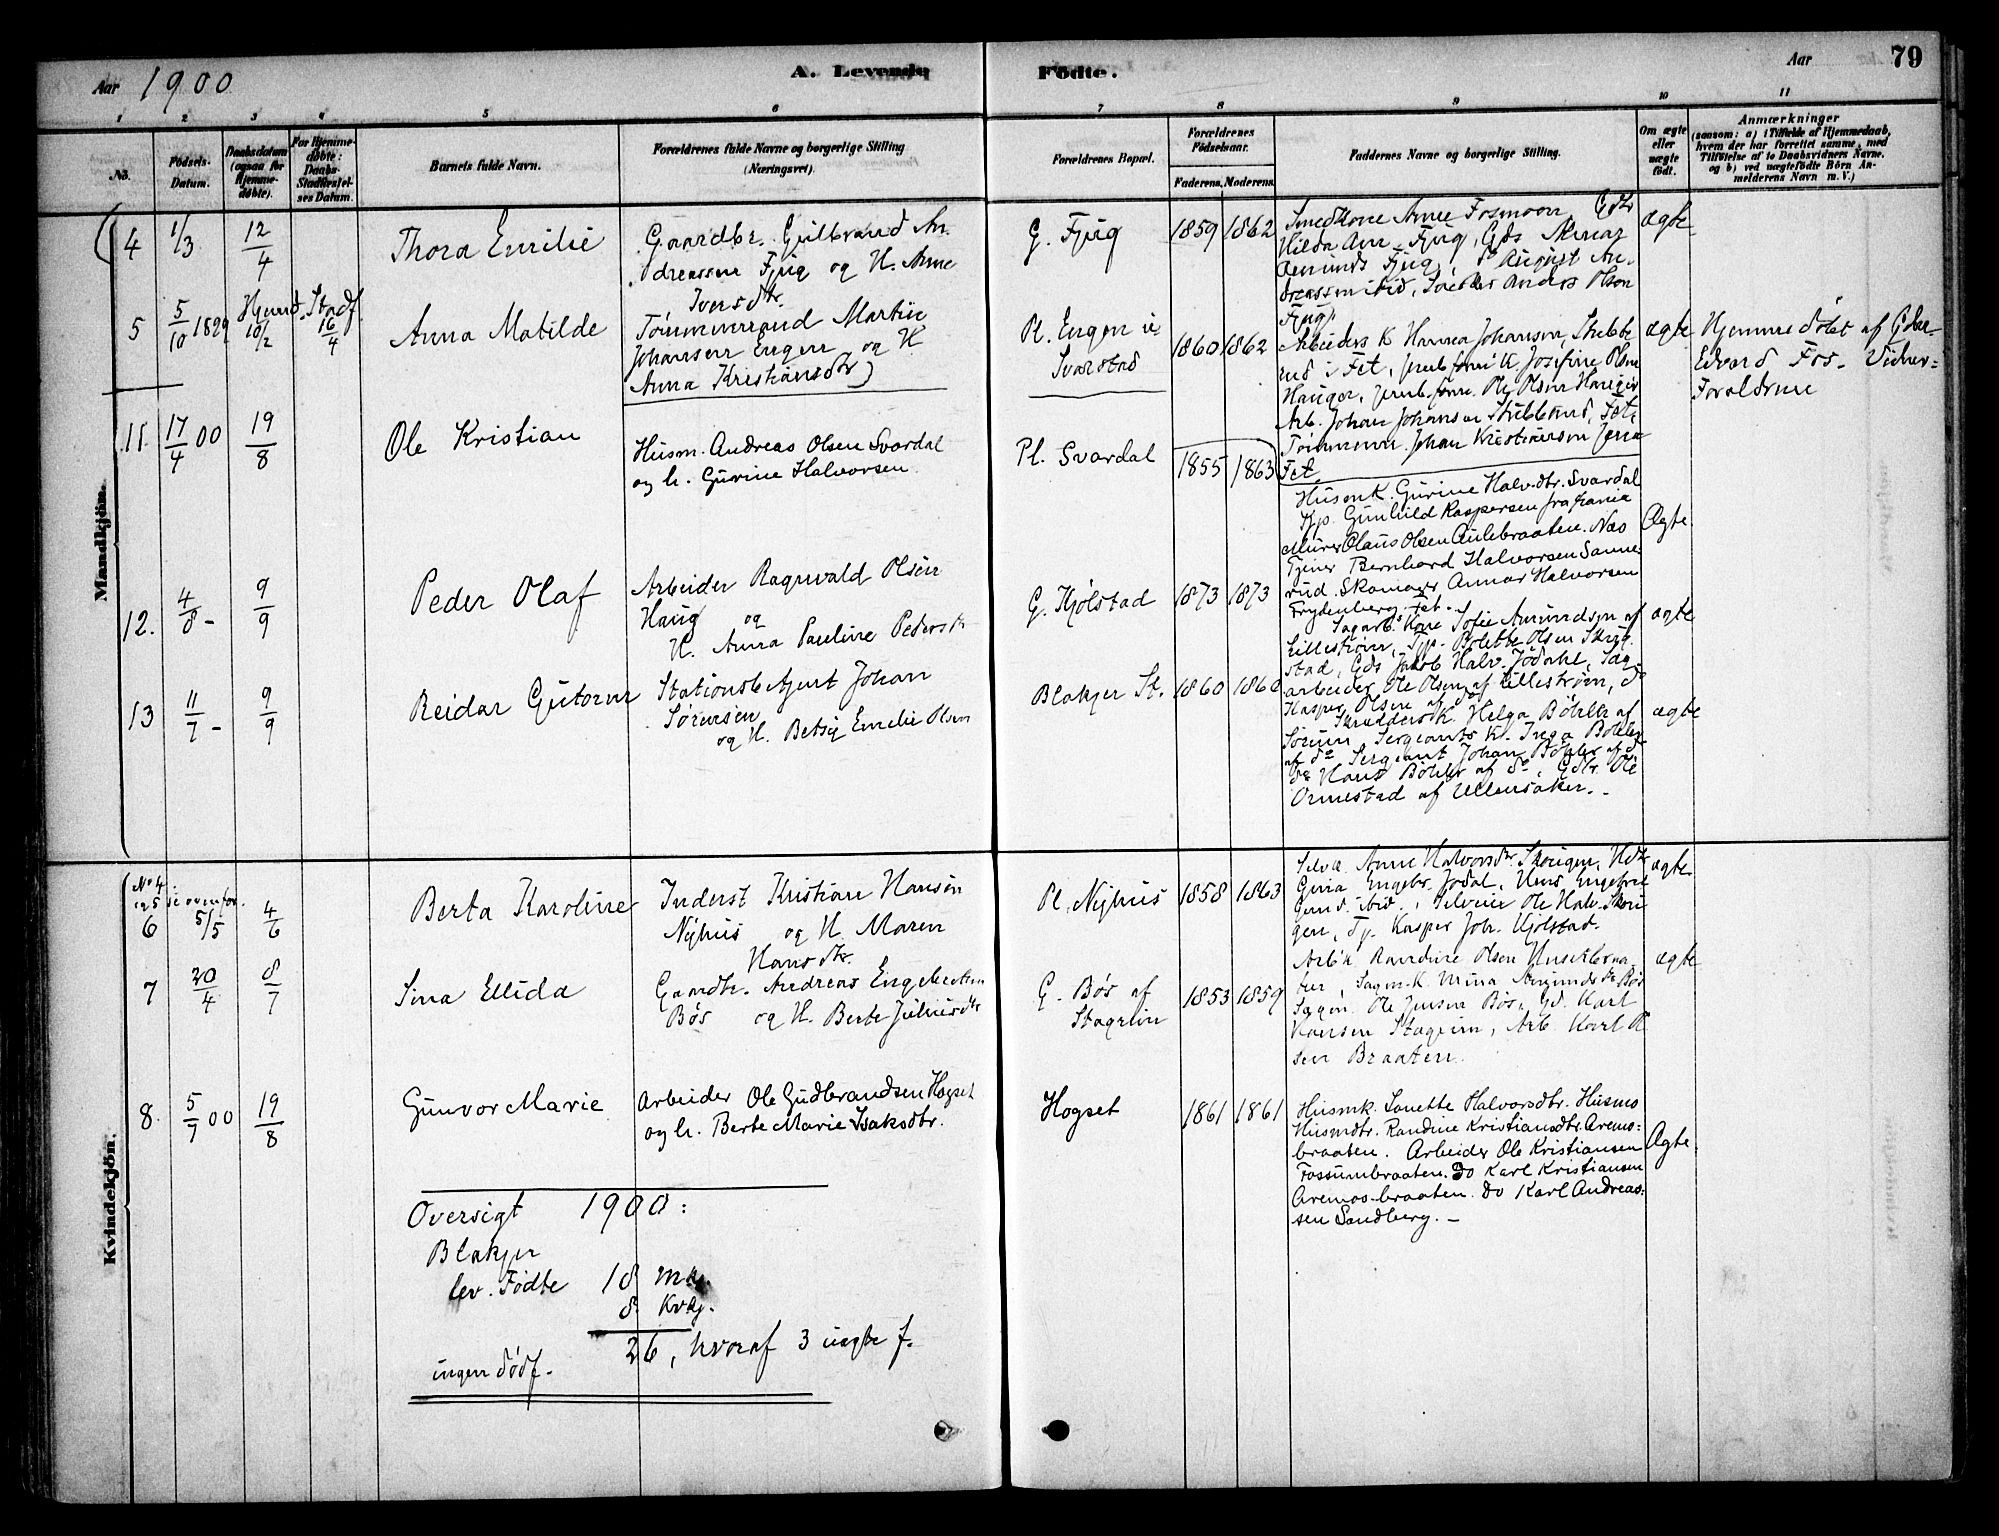 Aar 1900
A. Levende Födte.
Aar
79
1 2 3 4 5 6 7 8 9 10 11
No.
Födsels-
Datum.
Daabsdatum
(ogsaa for
Hjemme-
döbte).
For Hjemme-
döbte:
Daabs-
Stadfæstel-
ses Datum.
Barnets fulde Navn.
Forældrenes fulde Navne og borgerlige Stilling
(Næringsvei).
Forældrenes Bopæl.
Forældrenes
Födselsaar.
Faderens. Moderens.
Faddernes Navne og borgerlige Stilling.
Om ægte
eller
uægte
födt.
Anmærkninger
(saasom: a) i Tilfælde af Hjemmedaab,
hvem der har forrettet samme, med
Tilföielse af to Daabsvidners Navne,
og b) ved uægtefödte Börn An-
melderens Navn m. V.)
Mandkjön.
4
1/3
12/4
Thora Emilie
Gaardbr. Gulbrand An-
dreassen Fjug og H. Anne
Iversdtr.
G. Fjug
1859 1862
Smedkone Anne Fosmoen
Hilda Fjug, Gds
Amunds Fjug, August An-
dreassen ibid, Anders Olsen
Fjug
ægte
5
5/10 1899
Hjemd. 10/2
Stadf. 16/4
Anna Matilde
Tömmermand Martin
Johansen Engen og H.
Anna Kristiansdtr
Pl. Engen u
Svarstad
1860 1862
Arbeiders K Hanna Johansen, Stubbe
rud i Fet, Josefine Olsen
Hauger, Ole Olsen Hauger
Arb. Johan Johansen Stubberud, Fet,
Tömmerm. Johan Kristiansen
Fet
ægte
Hjemme döbt af Gbr.
Edvard Fos. Vidner-
Forældrene
11.
17/4 00
19/8
Ole Kristian
Husm. Andreas Olsen Svardal
og h. Gurine Halvorsen
Pl. Svardal
1855 1863
Husmk. Gurine Halv.dtr. Svardal
Tjp. Gunhild Kaspersen fra
Murer Claus Olsen Aulebraaten. Næs
Tjener Bernhard Halvorsen Sanne-
rud. Skomager Annar Halvorsen
Frydenberg. Fet.
Ægte.
12.
4/8 -
9/9
Peder Olaf
Arbeider Ragnvald Olsen
Haug og
H. Anna Pauline Pedersdtr
G. Kjölstad
1873 1873
Sagarb. Kone Sofie Amundsen af
Lilleström, Tjp. Bolette Olsen Skryg-
stad, Gds Jakob Halv. Jödahl, Sag-
arbeider Ole Olsen af Lilleström, do
Kasper Olsen af do
ægte
13
11/7 -
9/9
Reidar Gutorm
Stationsbetjent Johan
Sörensen
og H. Betsy Emelie Olsen
Blakjer St.
1860
Skrædders K. Helga Böhler af
Sörum, Sergeants K. Inga Böhler
af do Sergeant Johan Böhler af do
Hans Böhler af do, Gdbr. Ole
Ormestad af Ullensaker. -
ægte
Kvindekjön.
No 4
og 5 se ovenfor.
6
5/5
4/6
Berta Karoline
Inderst Kristian Hansen
Nyhus og H. Maren
Hansdtr.
Pl. Nyhus
1858 1863
Selve. Anne Halvorsdtr Skougen,
Gina Engebr. Jödal, Ungk. Engebret
ibid., Selveier Ole Halv. Skou
gen, Tj. Kasper Joh. Kjölstad.
ægte
7
20/4
8/7
Sina Ellida
Gaardbr. Andreas Engebretsen
Bös og H. Berte Juliusdtr
G. Bös af
Stagrim
1853 1859
Arb.K Randine Olsen
Sagm.K. Mina Amundsdtr Bös
Sagm. Ole Jensen Bös, Gd. Karl
Hansen Stagrim, Arb. Karl Ol
sen Braaten.
ægte
8.
5/7 00
19/8
Gunvor Marie
Arbeider Ole Gudbrandsen Hogset
og h. Berte Marie Isaksdtr.
Hogset
1861 1861
Husmk. Lovette Halvorsdtr. Husmo
Husmdtr. Randine Kristiansdtr. Aremos-
braaten. Arbeider Ole Kristiansen
Fossumbraaten. Do Karl Kristiansen
Aremos-braaten. Do Karl Andreas-
sen Sandberg. -
Ægte.
Oversigt 1900:
Blakjer
lev. Födte 18 Mkj.
8 Kvkj.
26, hvoraf 3 uægte f.
ingen dödf.